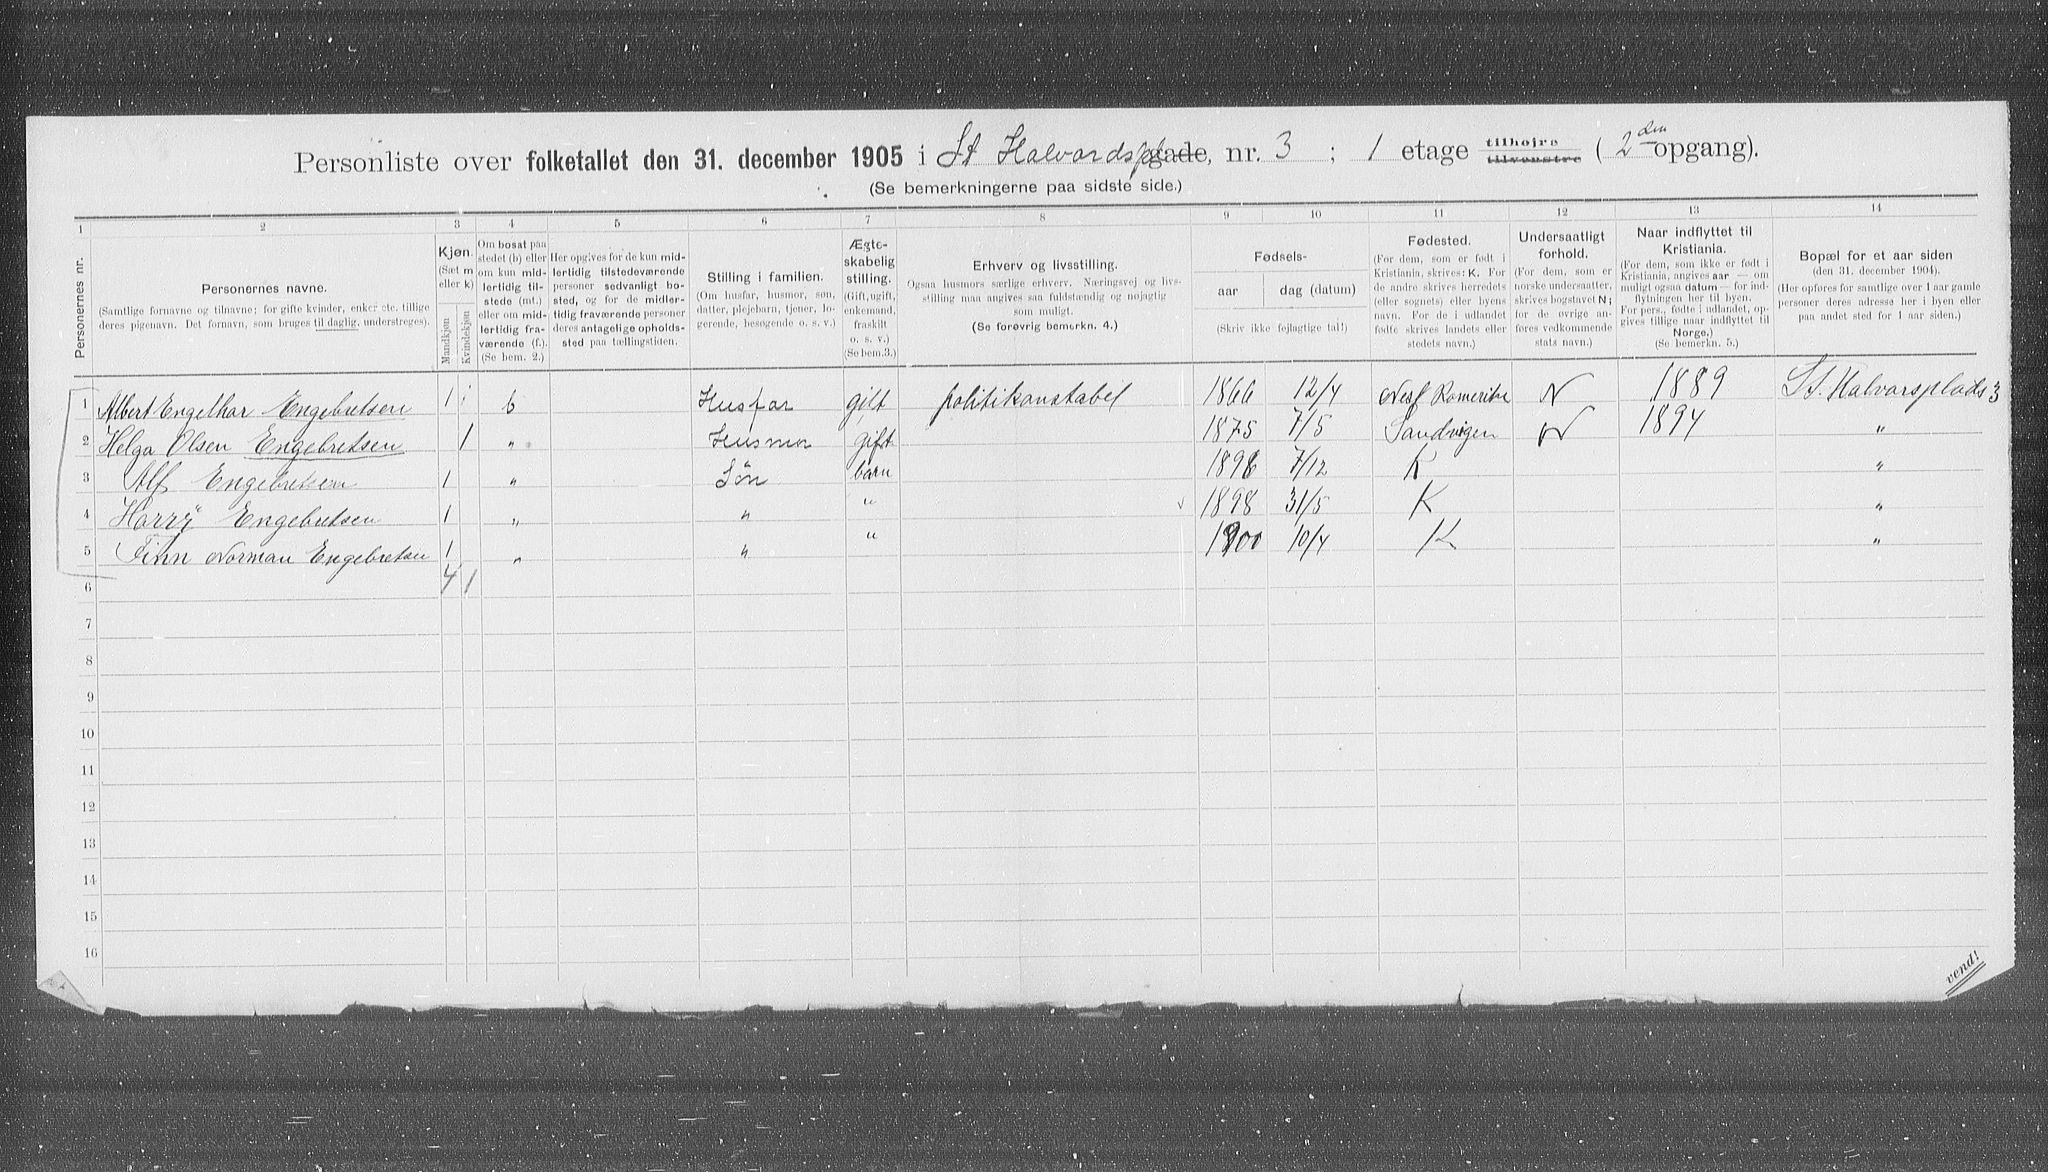 Personliste over folketallet den 31. december 1905 i St Halvardspl gade, nr. 3 ; 1 etage tilhøjre tilvenstre ( 2den opgang).
(Se bemerkningerne paa sidste side.)
1 2 3 4 5 6 7 8 9 10 11 12 13 14
Personernes nr.
Personernes navne.
(Samtlige fornavne og tilnavne; for gifte kvinder, enker etc. tillige
deres pigenavn. Det fornavn, som bruges til daglig, understreges).
Kjøn.
(Sæt m
eller k)
Mandkjøn
Kvindekjøn
Om bosat paa
stedet (b) eller
om kun mid-
lertidig til-
stede (mt.)
eller om mid-
lertidig fra-
værende (f.).
(Se bem. 2.)
Her opgives for de kun mid-
lertidig tilstedeværende
personer sedvanligt bo-
sted, og for de midler-
tidig fraværende personer
deres antagelige opholds-
sted paa tællingstiden.
Stilling i familien.
(Om husfar, husmor, søn,
datter, plejebarn, tjener, lo-
gerende, besøgende o. s. v.)
Ægte-
skabelig
stilling.
(Gift, ugift,
enkemand,
fraskilt
o. s. v.)
(Se bem.3.)
Erhverv og livsstilling.
Ogsaa husmors særlige erhverv. Næringsvej og livs-
stilling maa angives saa fuldstændig og nøjagtig
som muligt.
(Se forøvrig bemerkn. 4.)
Fødsels-
aar dag (datum)
(Skriv ikke fejlagtige tal!)
Fødested.
(For dem, som er født i
Kristiania, skrives: K. For
de andre skrives herredets
(eller sognets) eller byens
navn. For de i udlandet
fødte skrives landets eller
stedets navn.)
Undersaatligt
forhold.
(For dem, som er
norske undersaatter,
skrives bogstavet N;
for de øvrige an-
føres vedkommende
stats navn.)
Naar indflyttet til
Kristiania.
(For dem, som ikke er født i
Kristiania, angives aar — om
muligt ogsaa datum — for ind-
flytningen her til byen.
For pers., fødte i udlandet, op-
gives tillige naar indflyttet til
Norge.)
(Se bemerkn. 5.)
Bopæl for et aar siden
(den 31. december 1904).
(Her opføres for samtlige over 1 aar gamle
personer deres adresse her i byen eller
paa andet sted for 1 aar siden.)
1 Albert Engelhar Engebretsen 1 b Husfar gift politikonstabel 1866 12/4 Nes Romerike N 1889 St. Halvarsplads 3
2 Helga Olsen Engebretsen 1 " Husmor gift 1875 7/5 Sandvigen N 1894 "
3 Alf Engebretsen 1 " Søn barn 1896 7/12 K "
4 Harry Engebretsen 1 " " " 1898 31/5 K "
5 Finn Norman Engebretsen 1 " " " 1900 10/4 K "
6 4 1
7
8
9
10
11
12
13
14
15
16
vend!